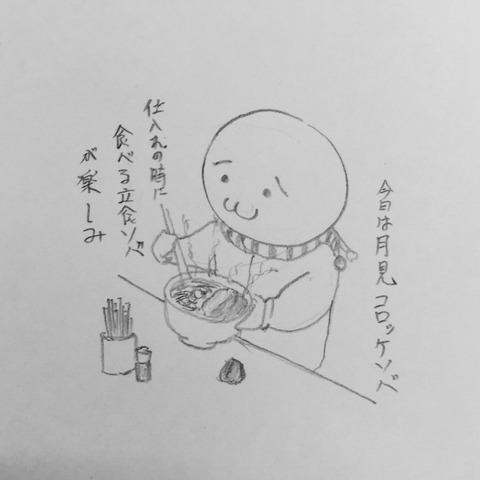 今日は月見コロッケソバ
仕入れの時に
食べる立食ソバ
が楽しみ